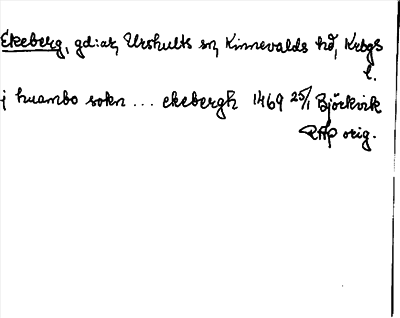 Ekeberg, gd:ar, Urshults sn, Kinnevalds hd, Krbgs
l.
j huambo sokn ... ekebergh 1469 25/1 Björkvik
RAp orig.